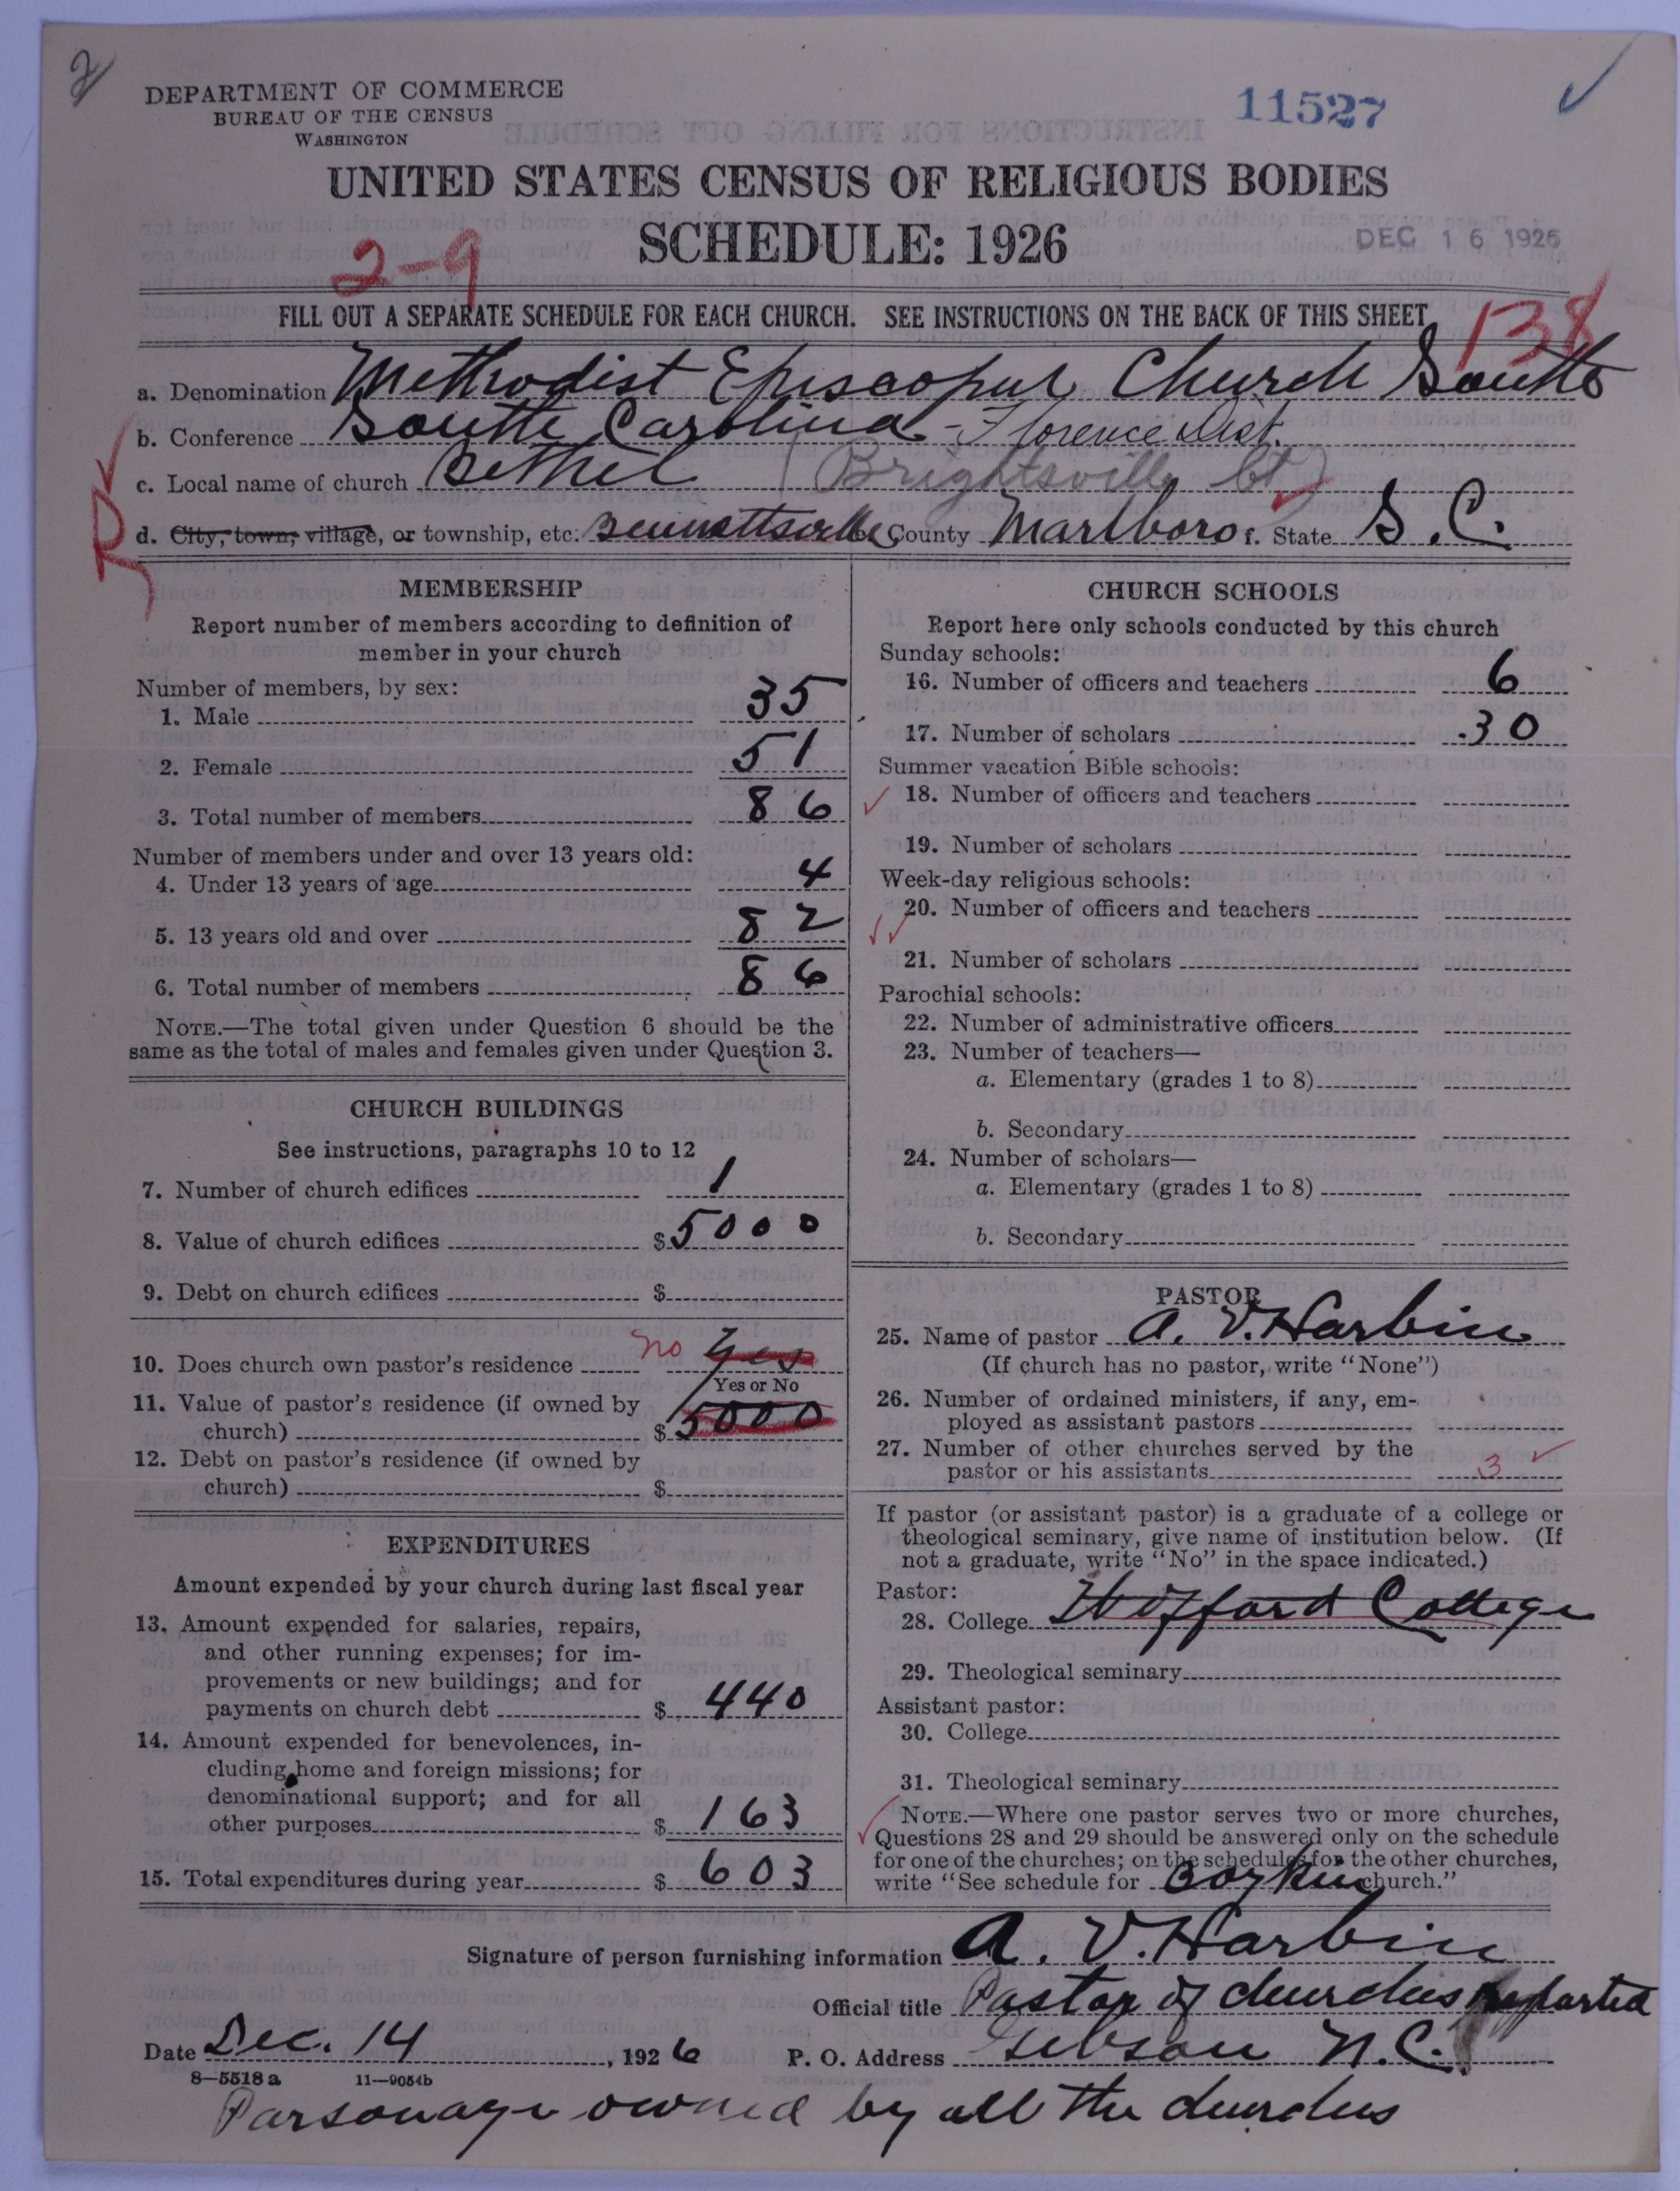 2
DEPARTMENT OF COMMERCE
BUREAU OF THE CENSUS
WASHINGTON
11527
UNITED STATES CENSUS OF RELIGIOUS BODIES
SCHEDULE: 1926
DEC 16 1926
2-9
FILL OUT A SEPARATE SCHEDULE FOR EACH CHURCH. SEE INSTRUCTIONS ON THE BACK OF THIS SHEET
138
a. Denomination Methodist Episcopal Church South
b. Conference South Carolina - Florence Dist.
c. Local name of church Bethel (Brightsville Ct)
R
d. City, town, village, or township, etc. Bennettsville County Marlboro f. State S.C.
MEMBERSHIP
Report number of members according to definition of
member in your church
Number of members, by sex:
1. Male 35
2. Female 51
3. Total number of members 86
Number of members under and over 13 years old:
4. Under 13 years of age 4
5. 13 years old and over 82
6. Total number of members 86
NOTE.—The total given under Question 6 should be the
same as the total of males and females given under Question 3.
CHURCH BUILDINGS
See instructions, paragraphs 10 to 12
7. Number of church edifices 1
8. Value of church edifices $5000
9. Debt on church edifices $
10. Does church own pastor's residence no Yes
Yes or No
11. Value of pastor's residence (if owned by
church) $5000
12. Debt on pastor's residence (if owned by
church) $
EXPENDITURES
Amount expended by your church during last fiscal year
13. Amount expended for salaries, repairs,
and other running expenses; for im-
provements or new buildings; and for
payments on church debt $ 440
14. Amount expended for benevolences, in-
cluding home and foreign missions; for
denominational support; and for all
other purposes $ 163
15. Total expenditures during year $ 603
CHURCH SCHOOLS
Report here only schools conducted by this church
Sunday schools:
16. Number of officers and teachers 6
17. Number of scholars 30
Summer vacation Bible schools:
18. Number of officers and teachers
19. Number of scholars
Week-day religious schools:
20. Number of officers and teachers
21. Number of scholars
Parochial schools:
22. Number of administrative officers
23. Number of teachers—
a. Elementary (grades 1 to 8)
b. Secondary
24. Number of scholars—
a. Elementary (grades 1 to 8)
b. Secondary
PASTOR
25. Name of pastor A. V. Harbin
(If church has no pastor, write "None")
26. Number of ordained ministers, if any, em-
ployed as assistant pastors
27. Number of other churches served by the
pastor or his assistants 3
If pastor (or assistant pastor) is a graduate of a college or
theological seminary, give name of institution below. (If
not a graduate, write "No" in the space indicated.)
Pastor:
28. College Wofford College
29. Theological seminary
Assistant pastor:
30. College
31. Theological seminary
NOTE.—Where one pastor serves two or more churches,
Questions 28 and 29 should be answered only on the schedule
for one of the churches; on the schedules for the other churches,
write "See schedule for Boykin church."
Signature of person furnishing information A. V. Harbin
Official title Pastor of churches Reported
Date Dec. 14, 1926 P. O. Address Gibson N.C.
8—5518 a 11—9054b
Parsonage owned by all the churches